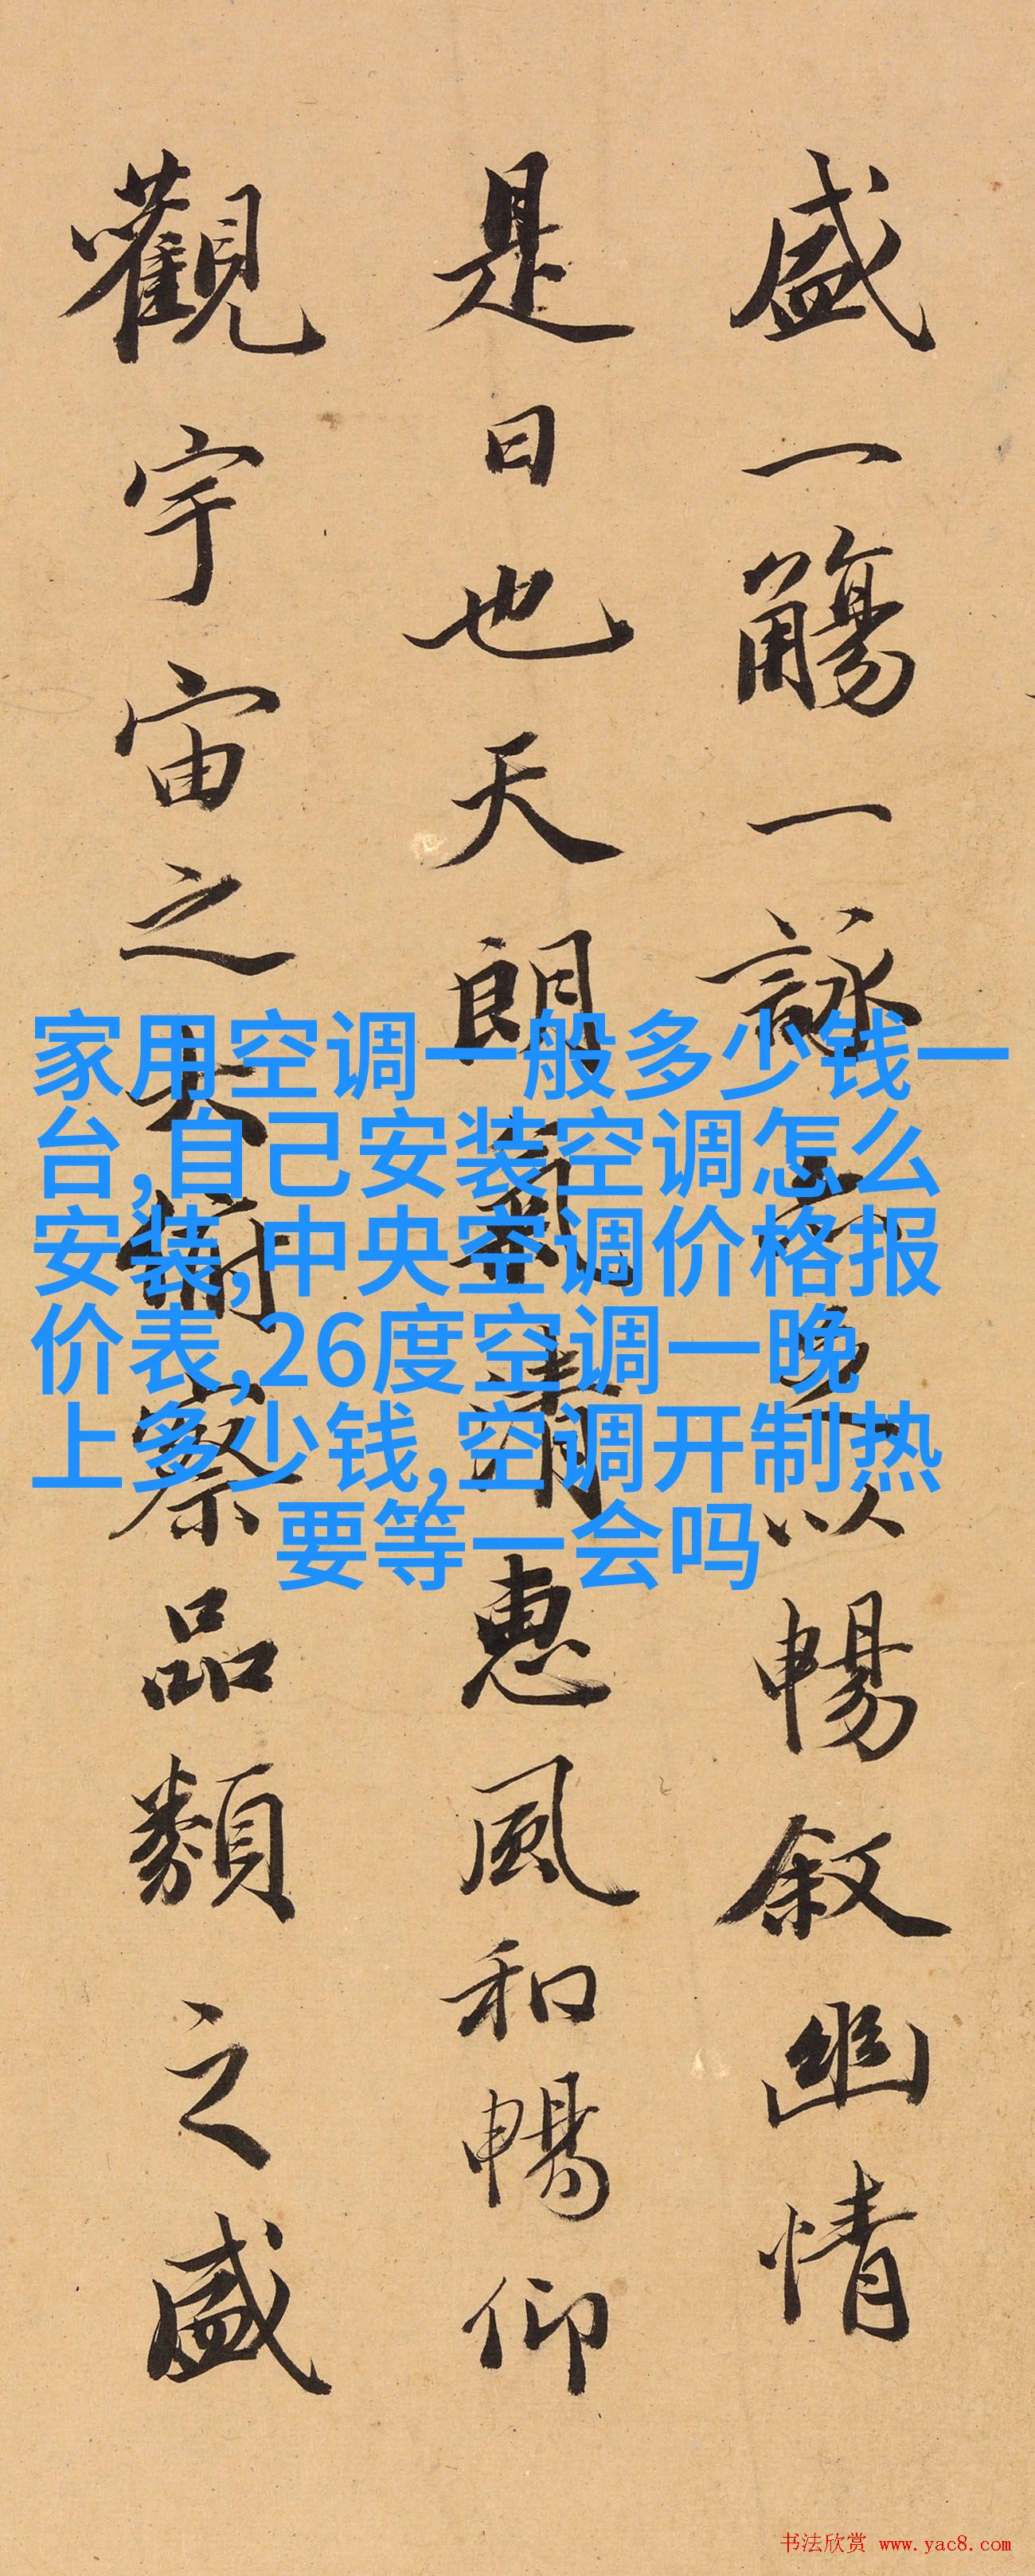 盛一觴一詠亦足以暢叙幽情
是日也天朗氣清惠風和暢仰
觀宇宙之大俯察品類之盛
家用空调一般多少钱一
台,自己安装空调怎么
安装,中央空调价格报
价表,26度空调一晚
上多少钱,空调开制热
要等一会吗
书法欣赏 www.yac8.com